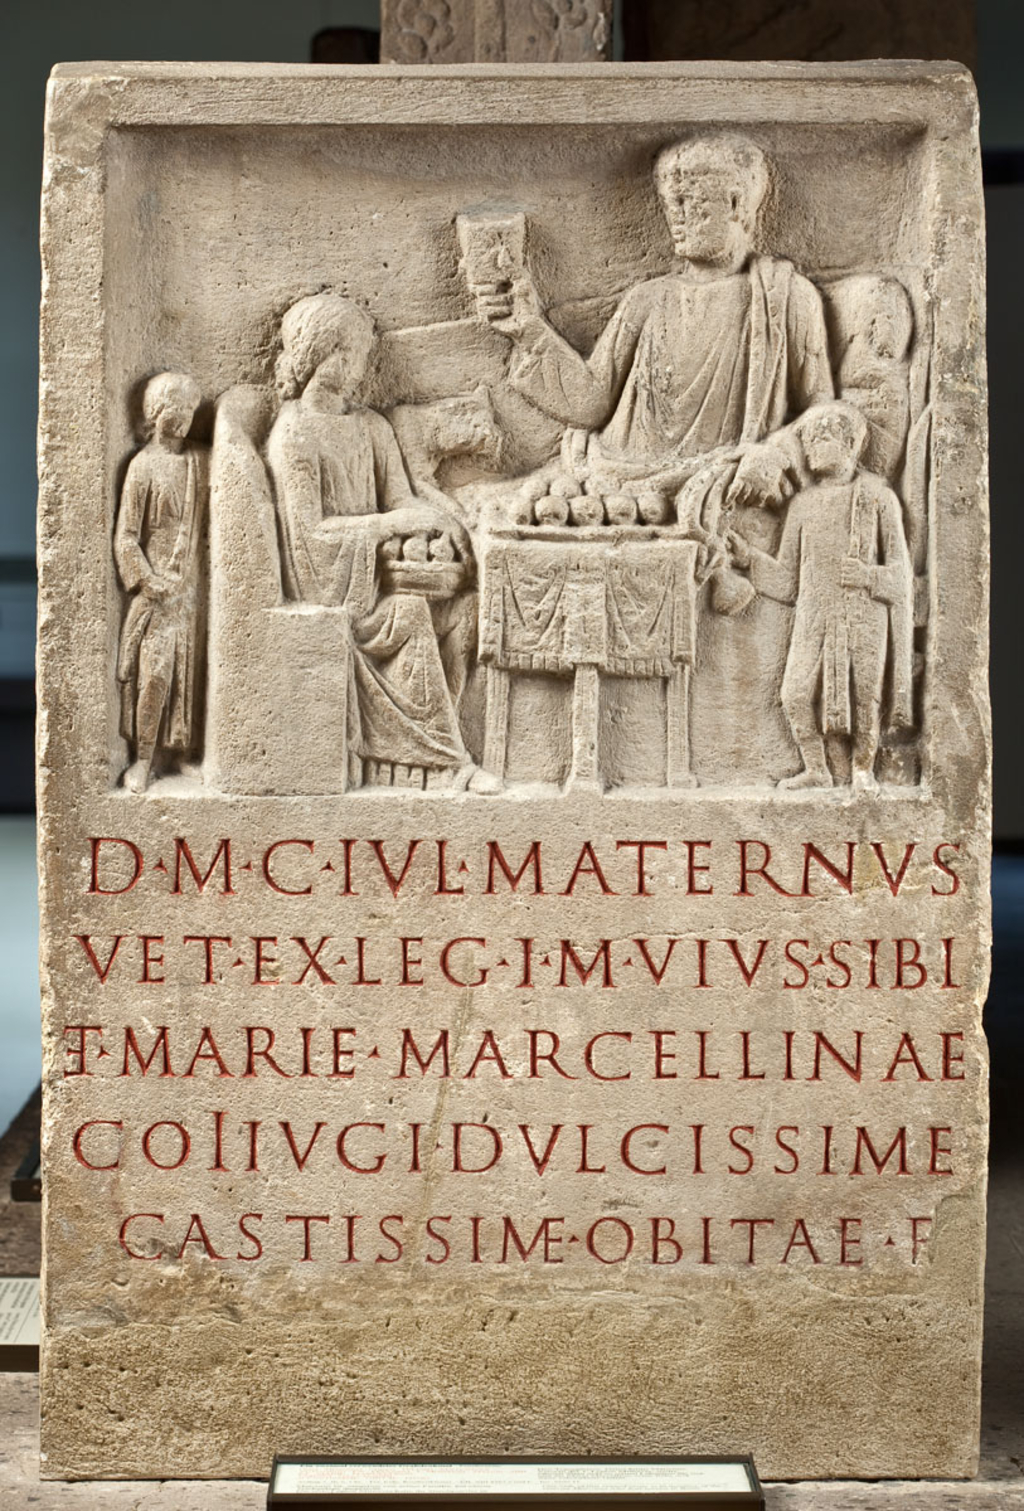 D·M·C·IVL·MATERNVS
VET·EX·LEG·I·M·VIVS·SIBI
ET·MARIE·MARCELLINAE
COIIVGI·DVLCISSIME
CASTISSIMAE·OBITAE·F